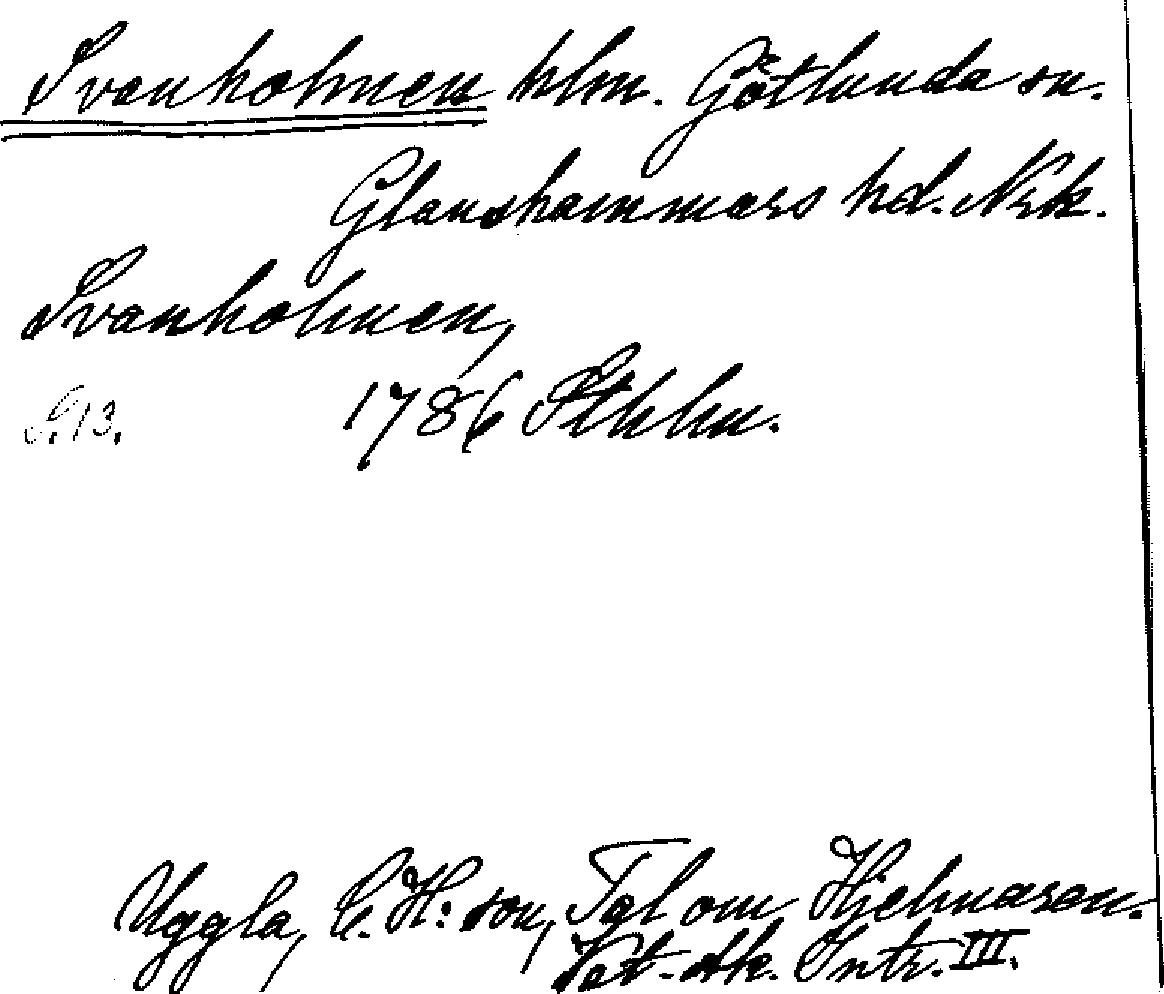 Svanholmen hlm. Götlunda sn.
Glanshammars hd. Nrk.
Svanholmen,
S. 13. 1786 Sthlm.
Uggla, C. H:son, Tal om Hjelmaren.
Vet.-ak. Intr. III.